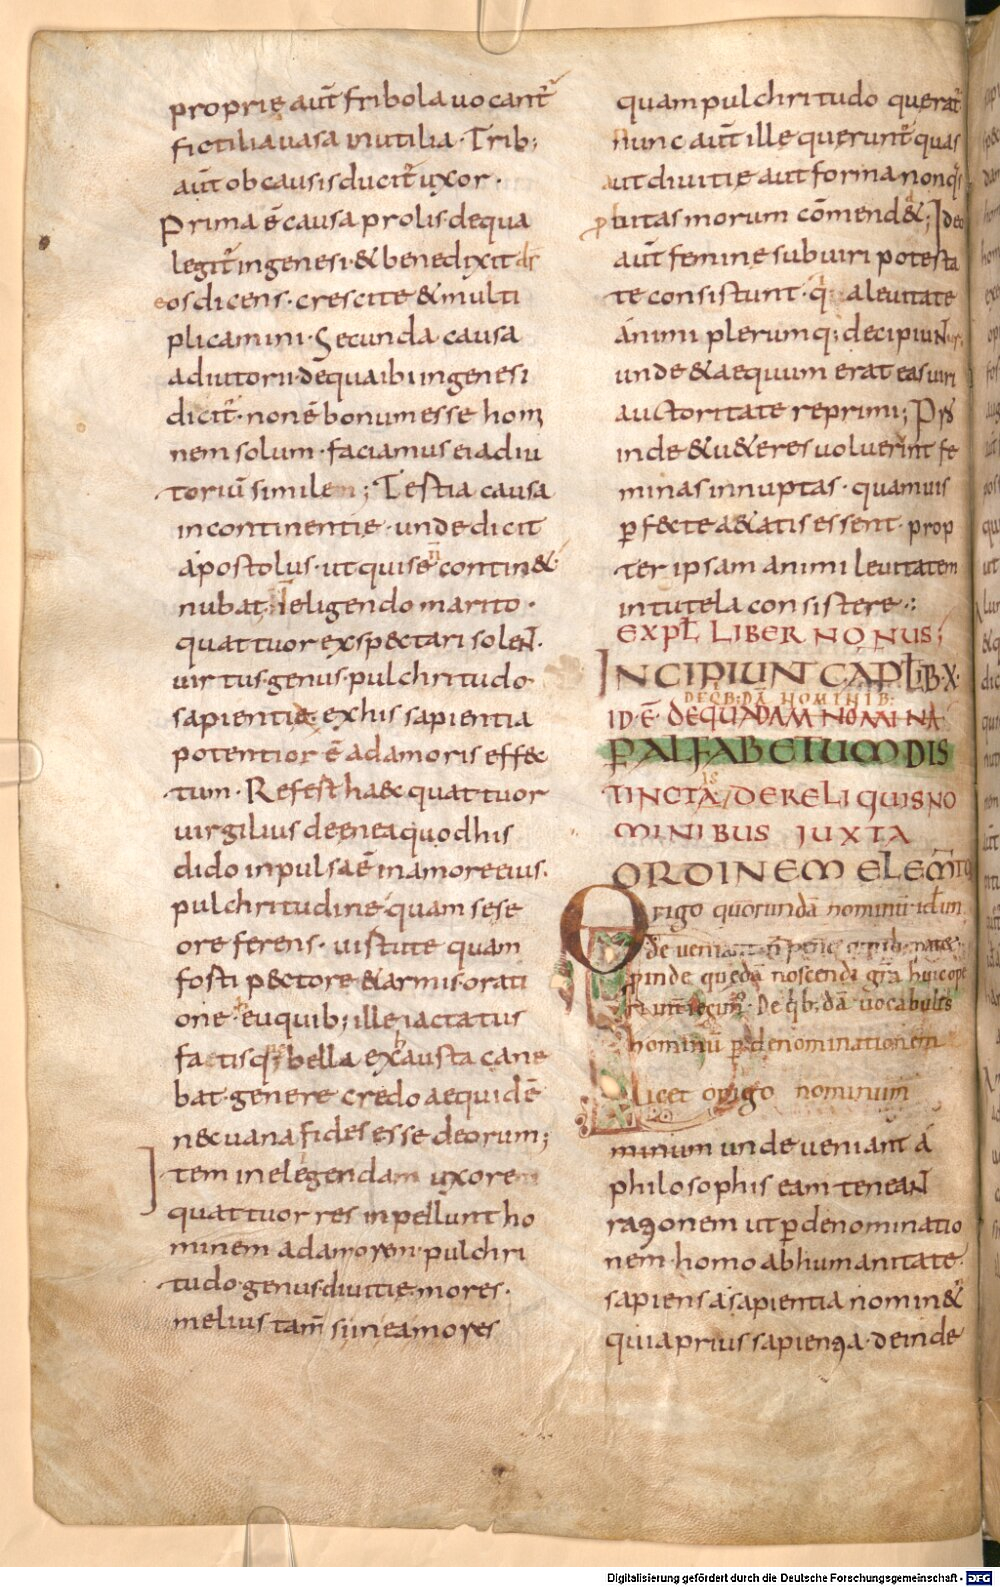 proprie aut̄ fribola uocant̄
fictilia uasa inutilia · Trib;
aut̄ ob causis ducit̄ uxor ·
Prima ē causa prolis · de qua
legit̄ in genesi · & benedixit ds̄
eos dicens · crescite & multi
plicamini · Secunda causa
adiutorii · de qua ibi in genesi
dicit̄ · non ē bonum esse homi
nem solum · faciamus ei adiu
toriū simile ; Tertia causa
incontinentie · unde dicit
apostolus · ut qui se n̄ contin&
nubat · In eligendo marito ·
quattuor exspectari solent ·
uirtus · genus · pulchritudo
sapientie · ex his sapientia
potentior ē ad amoris effec
tum · Refert haec quattuor
uirgilius de enea quod his
dido inpulsa ē in amore eius ·
pulchritudine · quam sese
ore ferens · uirtute quam
forti pectore & armis · orati
one · heu quib; ille iactatus
fatis q; bella exhausta cane
bat · genere credo aequidē
nec uana fides esse deorum ;
Item in elegendam uxorem
quattuor res inpellunt ho
minem ad amorem · pulchri
tudo · genus · diuitie · mores ·
melius tam̄ si in ea mores
quam pulchritudo querat̄
nunc aut̄ ille querunt̄ quas
aut diuitie aut forma non q̄s
p̄bitas morum cōmend& ; Ideo
aut̄ femine sub uiri potesta
te consistunt · q̄ a leuitate
animi plerumq; decipiuntur
unde & aequum erat eas uiri
auctoritate reprimi ; Pro
inde & u&eres uoluerunt fe
minas innuptas · quamuis
p̄fecte a&atis essent · prop
ter ipsam animi leuitatem
in tutela consistere ·:
EXPL̄ LIBER NONUS ;
INCIPIUNT CAP̄ LIB · X ·
DE Q̄B·DĀ NOMINIB:
ID · Ē · DE QUADAM NOMINA
P̄ ALFABETUM DIS
TINCTA / DE RELIQUIS NO
MINIBUS JUXTA
ORDINEM ELEM̄TO
Origo quorundā nominū · id un
de ueniant
proinde quedā noscendi grā huic operi
De q̄b; dā uocabulis
hominū p̄ denominationem
Licet origo nominum
minum unde ueniant á
philosophis eam teneant
rationem ut p̄ denominatio
nem · homo ab humanitate ·
sapiens a sapientia nomin&
quia prius sapientia · deinde
Digitalisierung gefördert durch die Deutsche Forschungsgemeinschaft - DFG